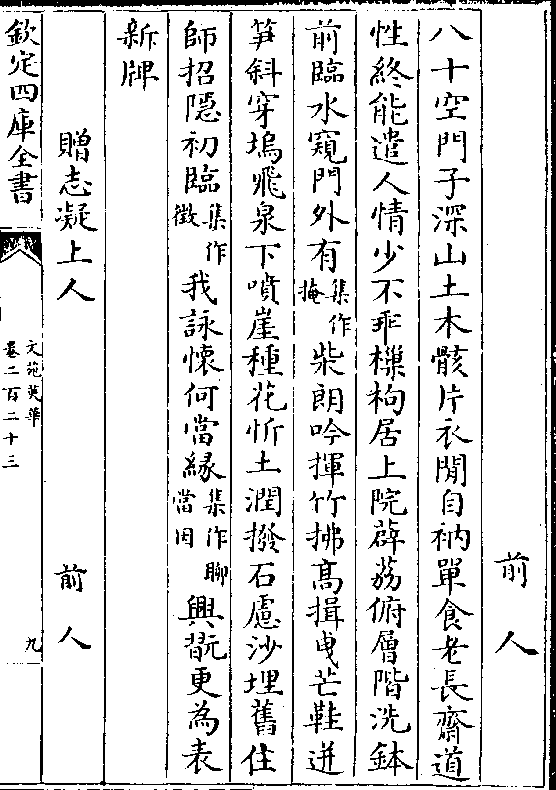 前人
八十空門子深山土木骸片衣閒自衲單食老長齋道
性終能遣人情少不乖櫟枸居上院薜荔俯層階洗鉢
前臨水窺門外有集作掩柴朗吟揮竹拂高揖曳芒鞋迸
笋斜穿塢飛泉下噴崖種花忻土潤撥石慮沙埋舊住
師招隱初臨集作徵我詠懷何當緣集作聊當因興翫更為表
新牌
贈志凝上人
前人
欽定四庫全書
文苑英華
卷二百二十三
九